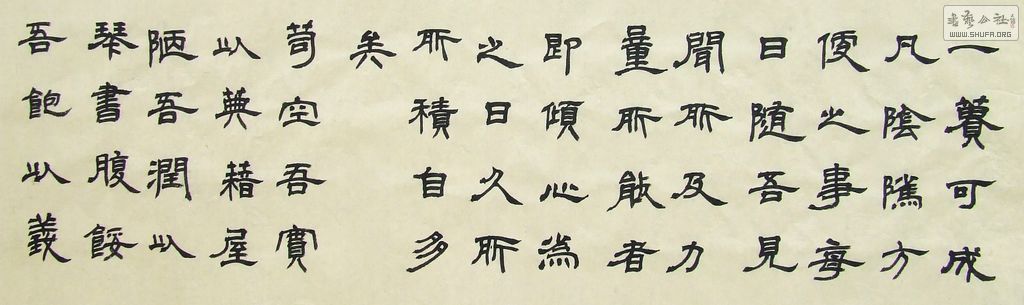 一蕢可成
凡陰隲方
便之事每
日隨吾見
聞所及力
量所能者
即傾心為
之日久所
所積自多
矣
笥空吾實
以典籍屋
陋吾潤以
琴書腹餒
吾飽以義
書藝公社
WWW.SHUFA.ORG